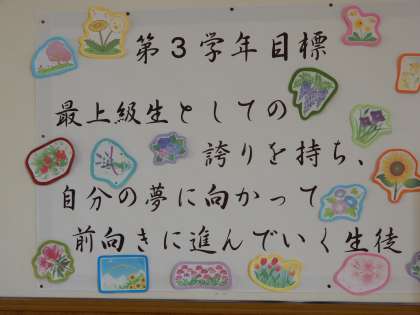 第3学年目標
最上級生としての
誇りを持ち、
自分の夢に向かって
前向きに進んでいく生徒